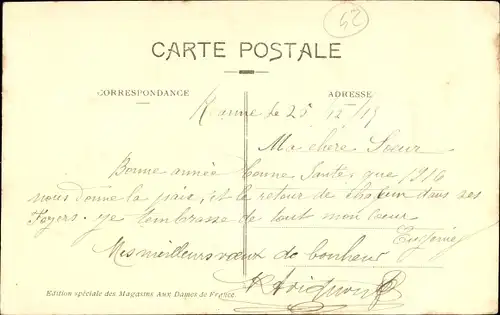 62
CARTE POSTALE
CORRESPONDANCE
ADRESSE
le 25 12/15
Ma chère Soeur
Bonne année bonne Santé que 1916
nous donne la paix, et le retour de chacun dans ses
Foyers. je tembrasse de tout mon Coeur
Eugénie
Mes meilleurs voeux de bonheur
Edition spéciale des Magasins Aux Dames de France.